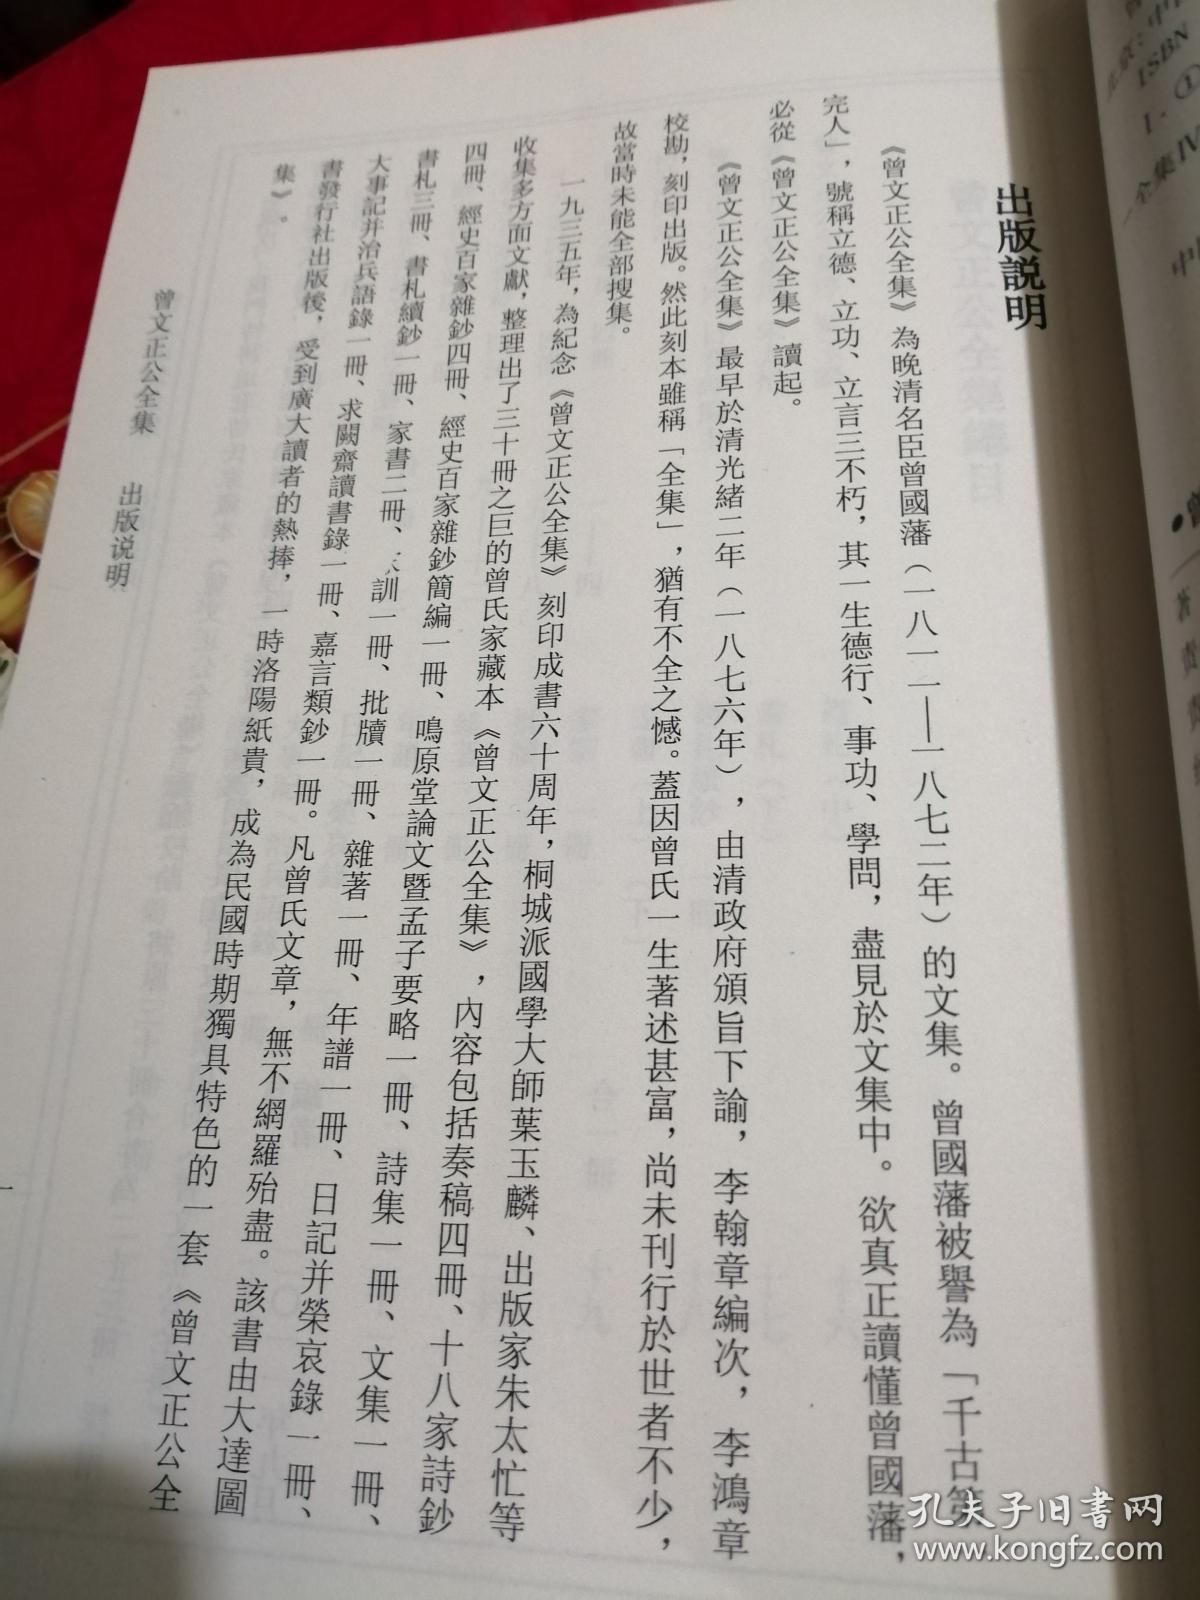 出版説明
《曾文正公全集》為晚清名臣曾國藩（一八一一——一八七二年）的文集。曾國藩被譽為「千古第
完人」，號稱立德、立功、立言三不朽，其一生德行、事功、學問，盡見於文集中。欲真正讀懂曾國藩，
必從《曾文正公全集》讀起。
《曾文正公全集》最早於清光緒二年（一八七六年），由清政府頒旨下諭，李翰章編次，李鴻章
校勘，刻印出版。然此刻本雖稱「全集」，猶有不全之憾。蓋因曾氏一生著述甚富，尚未刊行於世者不少，
故當時未能全部搜集。
一九三五年，為紀念《曾文正公全集》刻印成書六十周年，桐城派國學大師葉玉麟、出版家朱太忙等
收集多方面文獻，整理出了三十冊之巨的曾氏家藏本《曾文正公全集》，內容包括奏稿四冊、十八家詩鈔
四冊、經史百家雜鈔四冊、經史百家雜鈔簡編一冊、鳴原堂論文暨孟子要略一冊、詩集一冊、文集一冊、
書札三冊、書札續鈔一冊、家書二冊、訓一冊、批牘一冊、雜著一冊、年譜一冊、日記并榮哀錄一冊、
大事記并治兵語錄一冊、求闕齋讀書錄一冊、嘉言類鈔一冊。凡曾氏文章，無不網羅殆盡。該書由大達圖
書發行社出版後，受到廣大讀者的熱捧，一時洛陽紙貴，成為民國時期獨具特色的一套《曾文正公全
集》。
曾文正公全集 出版说明
一
ISBN
I·①
全集IV
孔夫子旧书网
www.kongfz.com